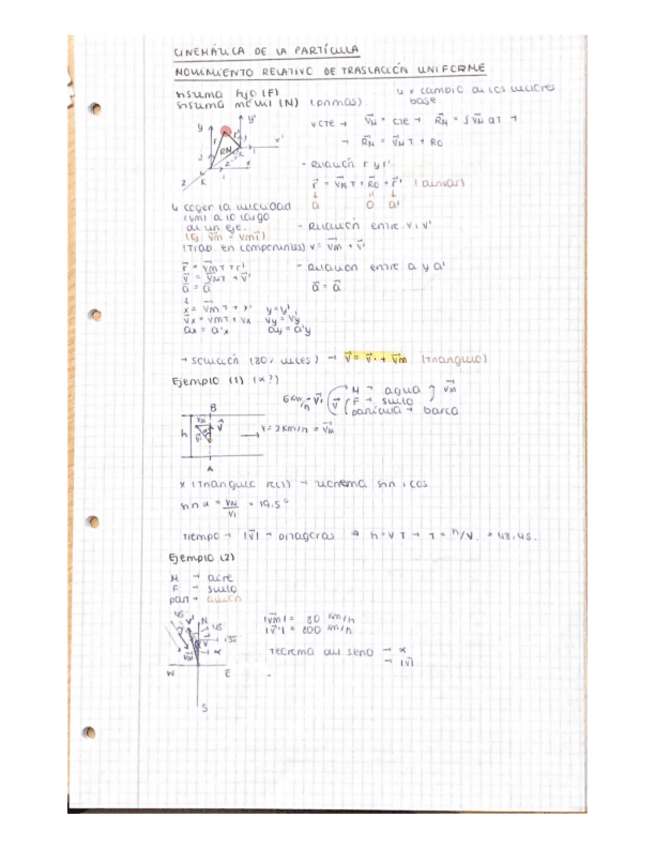 CINEMÁTICA DE LA PARTÍCULA
MOVIMIENTO RELATIVO DE TRASLACIÓN UNIFORME
sistema fijo (F)
sistema móvil (M) (prima)
↳ x cambio de los vectores
base
y y' RM v' x z K
v cte → V⃗M = cte → R⃗M = ∫ V⃗M dT →
→ R⃗M = V⃗M T + R0
- Relación r y r'.
r⃗ = V⃗M T + R⃗0 + r⃗'
a⃗ 0 a⃗'
↳ coger la velocidad
(vm) a lo largo
de un eje.
(Ej. v⃗m = vm i⃗)
(Trab. en componentes)
- Relación entre v y v'
v = v⃗m + v⃗'
r⃗ = v⃗m T + r⃗'
v⃗ = v⃗m T + v⃗'
a⃗ = a⃗'
- Relación entre a y a'
a⃗ = a⃗
x = v⃗m T + x' y = y'
vx = vmT + vx vy = vy
ax = a'x ay = a'y
→ solución (80% veces) → v⃗ = v⃗' + v⃗m (triángulo)
Ejemplo (1) (α?)
6 km/h v⃗' v⃗
M → agua v⃗M
F → suelo
partícula → barca
B
h vm v⃗ v = 2 km/h = v⃗M
A
x (triángulo rect) → teorema sin y cos
sin α = VM / V' = 19.5°
tiempo → |v⃗| → pitágoras ⇒ h = V T → T = h/V = 48.4s.
Ejemplo (2)
M → aire
F → suelo
part → avión
45° N 15 135 α
|v⃗m| = 80 km/h
|v⃗'| = 800 km/h
Teorema del seno → α
→ |v⃗|
W E
S